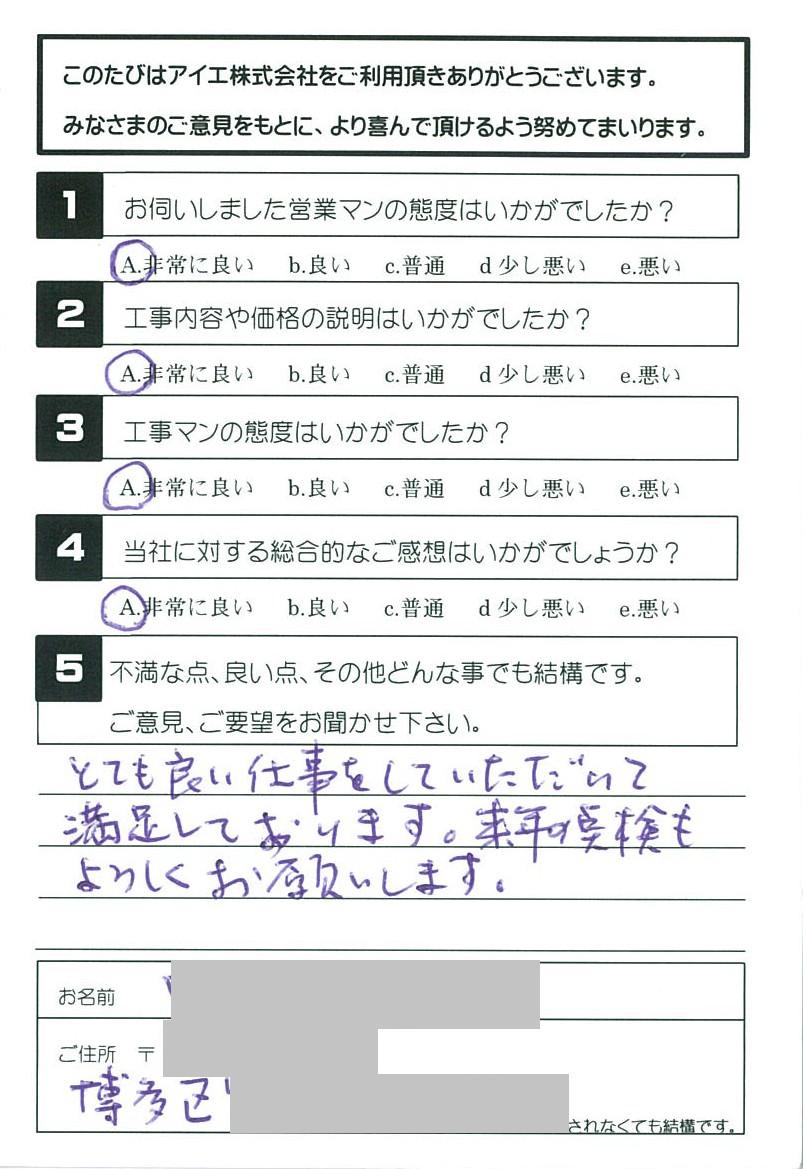 このたびはアイエ株式会社をご利用頂きありがとうございます。
みなさまのご意見をもとに、より喜んで頂けるよう努めてまいります。
1 お伺いしました営業マンの態度はいかがでしたか？
A.非常に良い b.良い c.普通 d 少し悪い e.悪い
2 工事内容や価格の説明はいかがでしたか？
A.非常に良い b.良い c.普通 d 少し悪い e.悪い
3 工事マンの態度はいかがでしたか？
A.非常に良い b.良い c.普通 d 少し悪い e.悪い
4 当社に対する総合的なご感想はいかがでしょうか？
A.非常に良い b.良い c.普通 d 少し悪い e.悪い
5 不満な点、良い点、その他どんな事でも結構です。
ご意見、ご要望をお聞かせ下さい。
とても良い仕事をしていただいて
満足しております。来年の点検も
よろしくお願いします。
お名前
ご住所 〒
博多区
されなくても結構です。